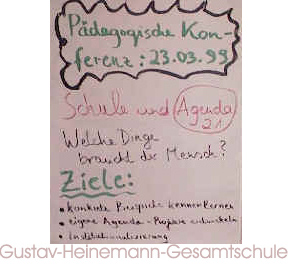 Pädagogische Kon-
ferenz: 23.03.99
Schule und Agenda
21
Welche Dinge
braucht der Mensch?
Ziele:
• konkrete Beispiele kennenlernen
• eigene Agenda-Projekte entwickeln
• Institutionalisierung
Gustav-Heinemann-Gesamtschule